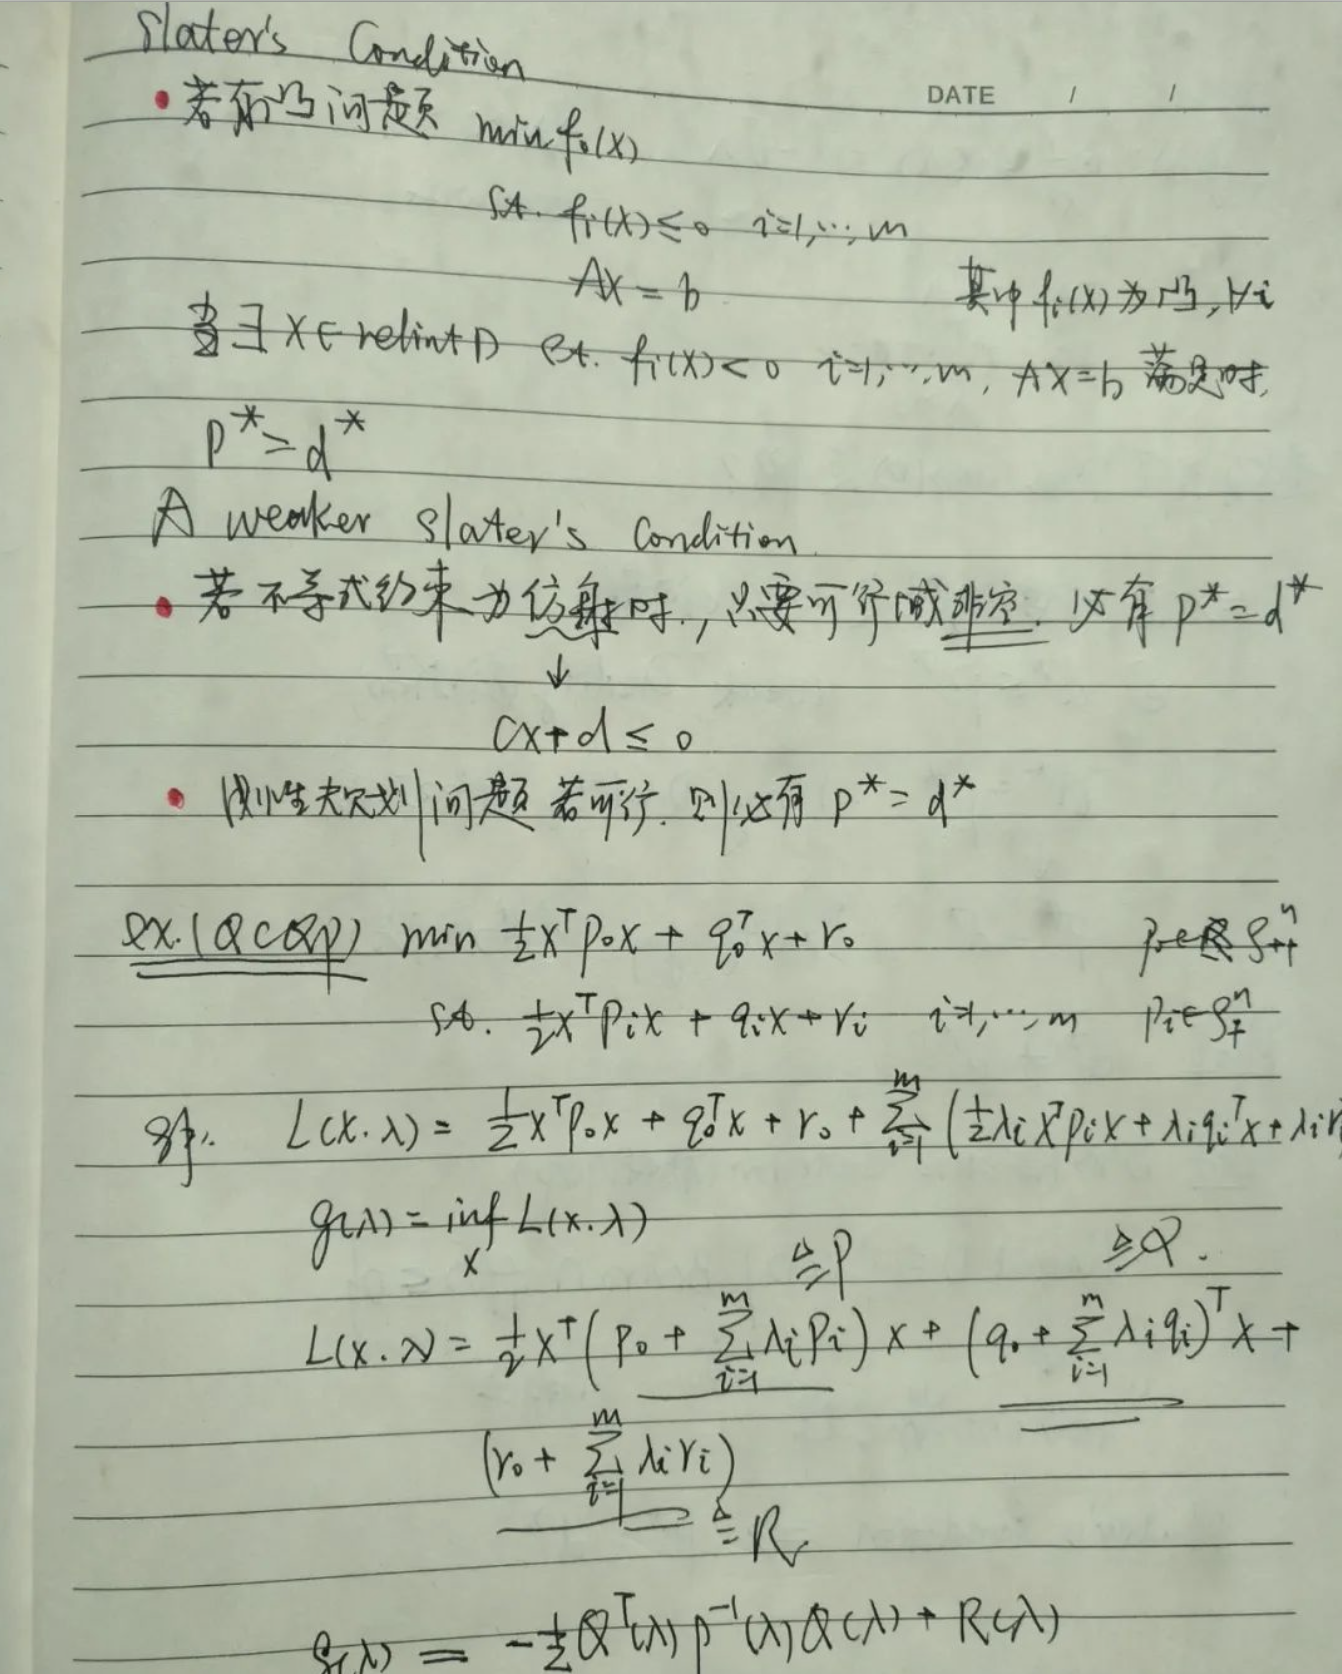 Slater's Condition
DATE / /
• 若有凸问题 min f₀(x)
s.t. fᵢ(x) ≤ 0 i=1,...,m
Ax = b 其中 fᵢ(x) 为凸, ∀i
当 ∃ x ∈ relint D s.t. fᵢ(x) < 0 i=1,...,m, Ax=b 满足时,
p* = d*
A weaker Slater's Condition
• 若不等式约束为仿射时, 只要可行域非空, 必有 p* = d*
↓
Cx+d ≤ 0
• 线性规划问题若可行, 则必有 p* = d*
ex. (QCQP) min ½xᵀP₀x + q₀ᵀx + r₀ P₀∈ Sⁿ₊₊
s.t. ½xᵀPᵢx + qᵢx + rᵢ i=1,...,m Pᵢ∈Sⁿ₊
L(x.λ) = ½xᵀP₀x + q₀ᵀx + r₀ + Σᵢ₌₁ᵐ (½λᵢxᵀPᵢx + λᵢqᵢᵀx + λᵢr
g(λ) = inf L(x.λ)
x
≜P ≜Q.
L(x.λ) = ½xᵀ(P₀ + Σᵢ₌₁ᵐ λᵢPᵢ)x + (q₀ + Σᵢ₌₁ᵐ λᵢqᵢ)ᵀx +
(r₀ + Σᵢ₌₁ᵐ λᵢrᵢ)
≜R
g(λ) = -½Qᵀ(λ)P⁻¹(λ)Q(λ) + R(λ)